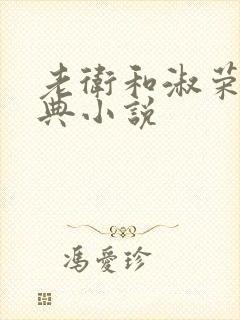 老衛和淑荣
典小説
馮愛珍